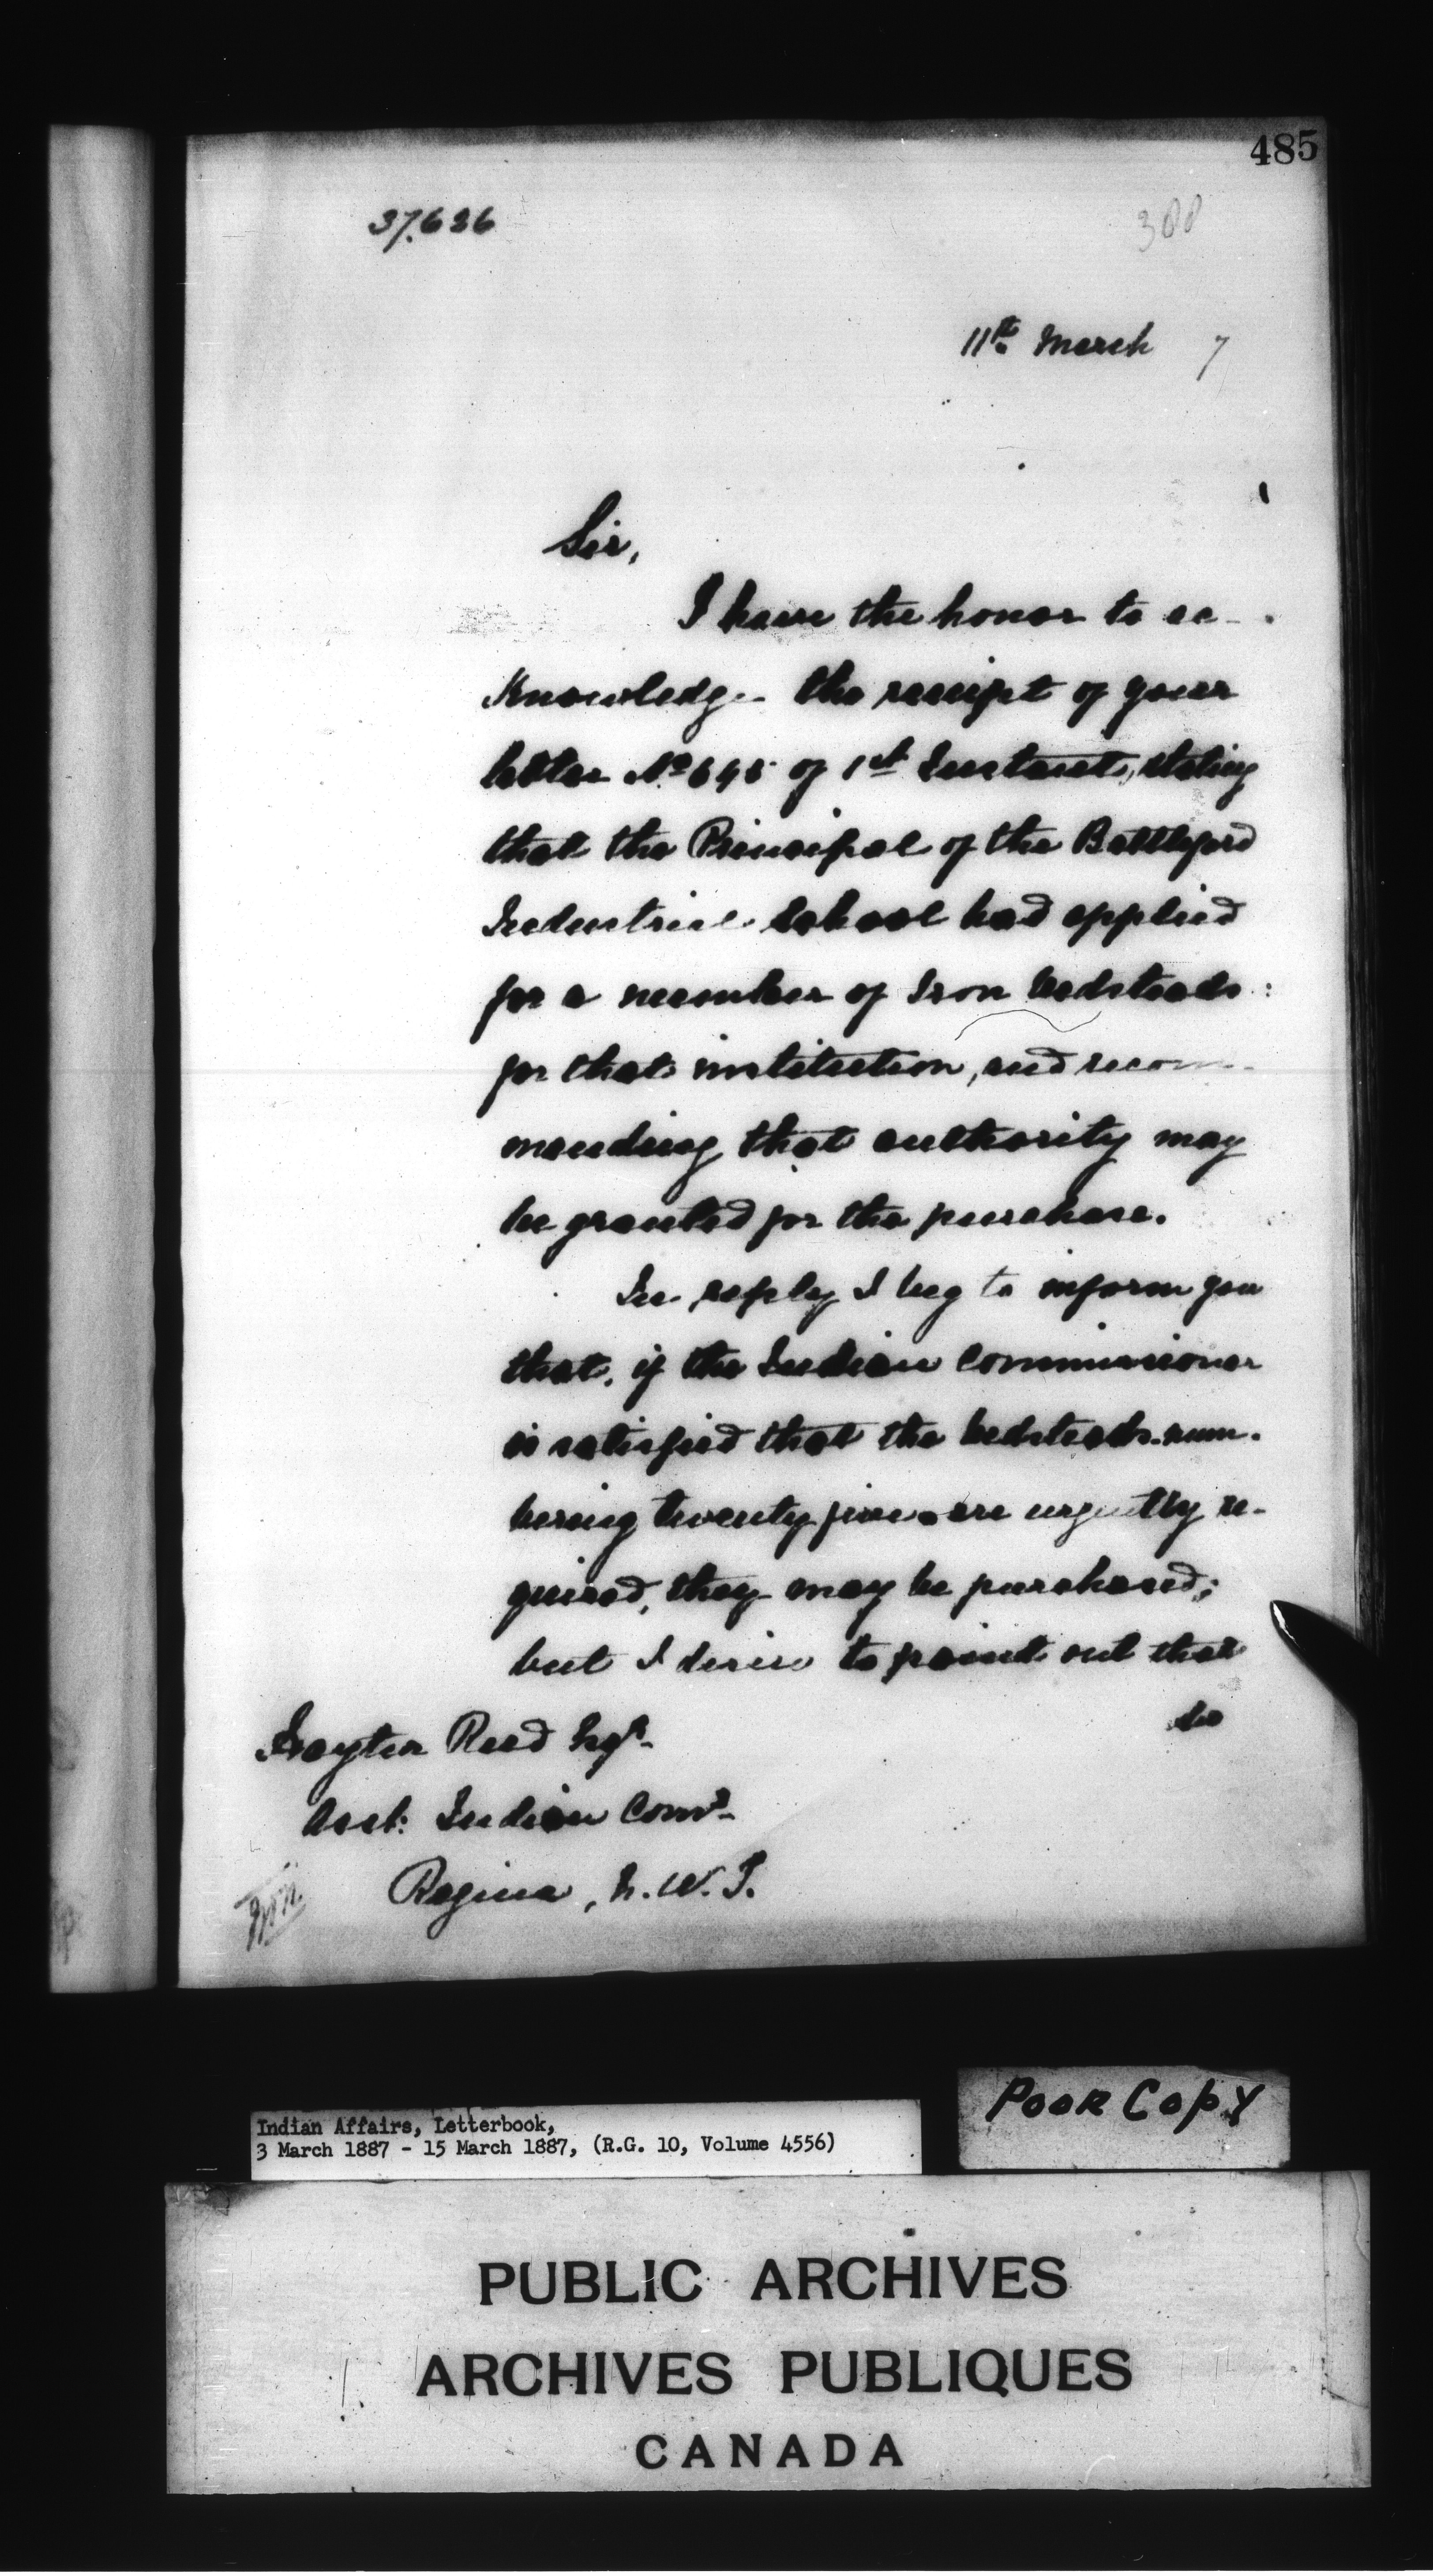 485
37.636
388
11th March 7
Sir,
I have the honor to ac-
knowledge the receipt of your
letter No 645 of 1st Instant, stating
that the Principal of the Battleford
Industrial School had applied
for a number of Iron bedsteads
for that institution, and recom-
mending that authority may
be granted for the purchase.
In reply I beg to inform you
that, if the Indian Commissioner
is satisfied that the bedsteads num-
bering twenty five are urgently re-
quired, they may be purchased;
but I desire to point out that
Hayter Reed Esqr.
Asst: Indian Comr.
Regina, N.W.T.
Indian Affairs, Letterbook,
3 March 1887 - 15 March 1887, (R.G. 10, Volume 4556)
POOR COPY
PUBLIC ARCHIVES
ARCHIVES PUBLIQUES
CANADA